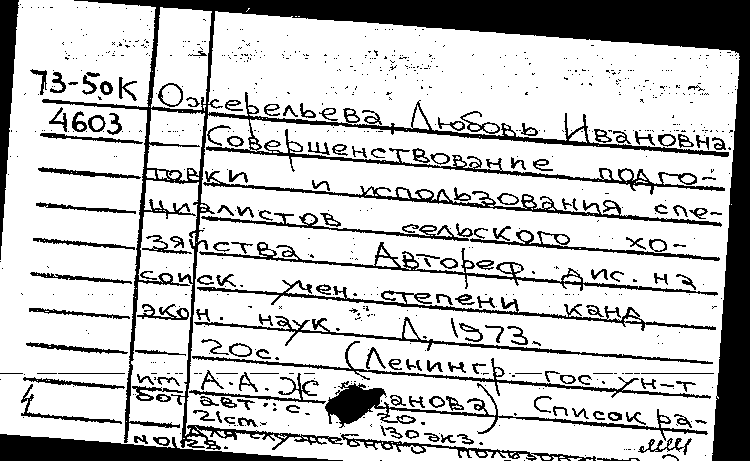 73-50К
4603
Ожерельева, Любовь Ивановна.
Совершенствование подго-
товки и использования спе-
циалистов сельского хо-
зяйства. Автореф. дис. на
соиск. учен. степени канд
экон. наук. Л., 1973.
20с. (Ленингр. гос. ун-т
им А.А. Жданова). Список ра-
бот авт.: с. 20.
21см. 130 экз.
Для служебного